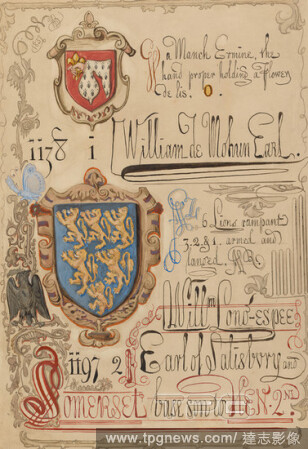 In Manch Ermine, the
hand proper holding a flower
de lis.
1138 1 William de Mohun Earl.
6 Lions rampant
3.2.&1. armed and
langed.
Will^m Longespee
1197 2 Earl of Salisbury and
Somerset base son to HEN. 2^nd
www.tpgnews.com/達志影像